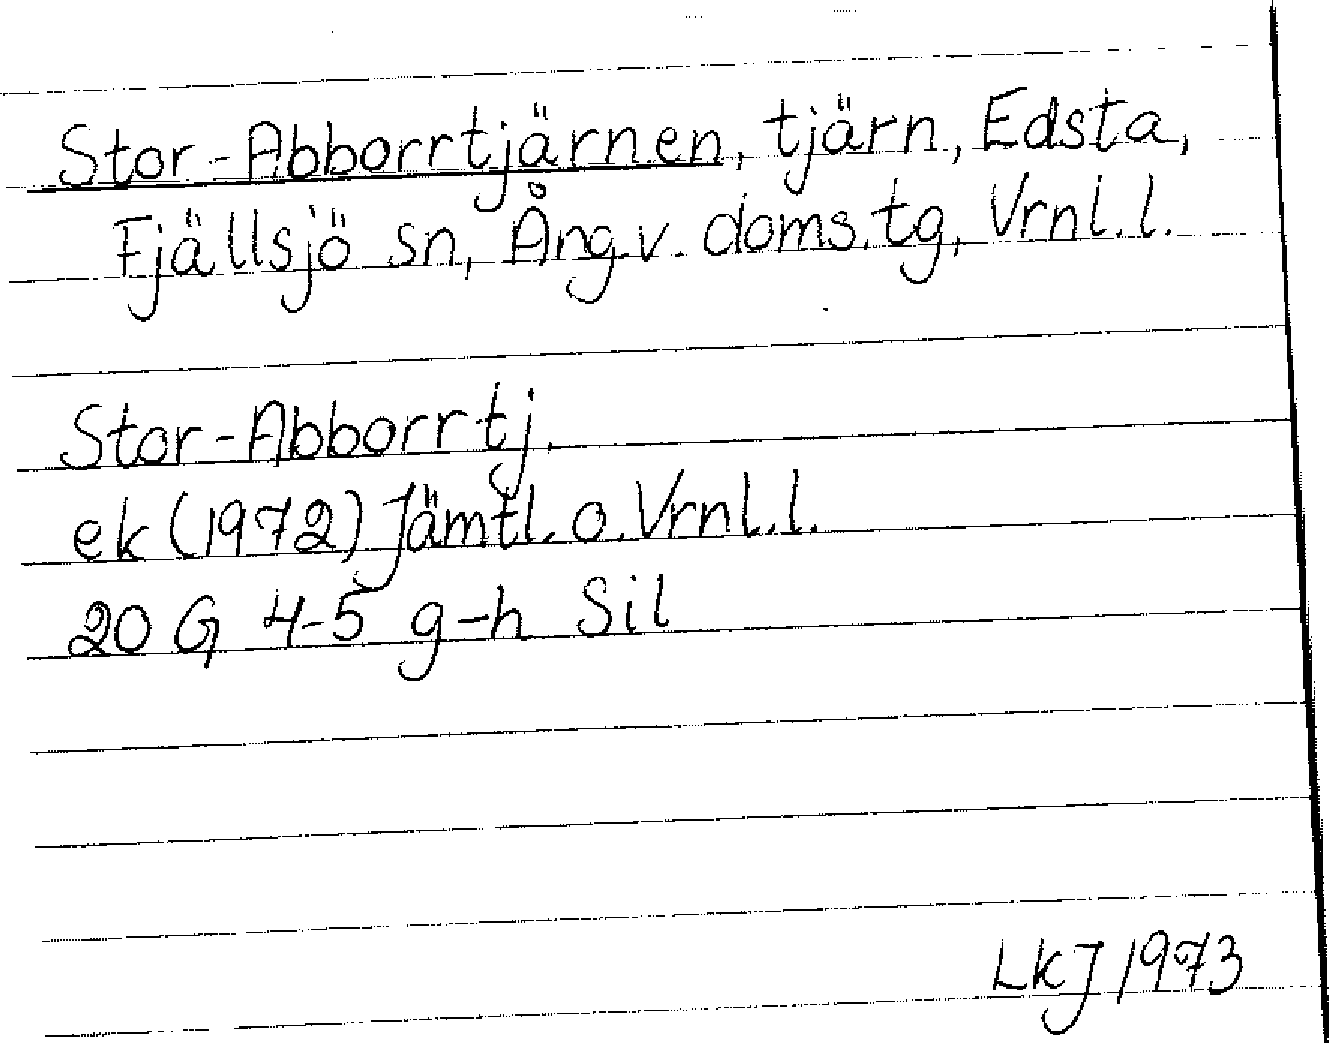 Stor-Abborrtjärnen, tjärn, Edsta,
Fjällsjö sn, Ång.v. doms.tg, Vrnl.l.
Stor-Abborrtj.
ek (1972) Jämtl. o. Vrnl.l.
20 G 4-5 g-h Sil
LKJ 1973